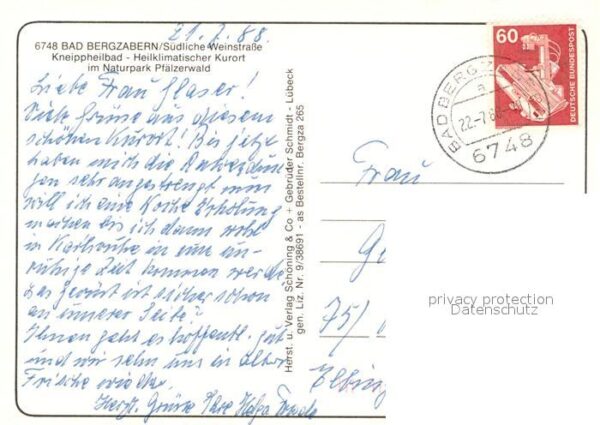 21.7.88.
6748 BAD BERGZABERN/Südliche Weinstraße
Kneippheilbad - Heilklimatischer Kurort
im Naturpark Pfälzerwald
Liebe Frau Glaser!
Viele Grüße aus diesem
schönen Kurort! Bis jetzt
haben mich die
sehr angestrengt nun
will ich eine Woche Erholung
machen bis ich dann wohl
in Karlsruhe in eine un-
ruhige Zeit kommen werde
ist sicher schon
an innerer Seite?
Ihnen geht es hoffentl. gut
und wir sehn uns in alter
Frische wieder.
Herzl. Grüße Ihre Helga
Herst. u. Verlag Schöning & Co + Gebrüder Schmidt - Lübeck
gen. Liz. Nr. 9/38691 - as Bestellnr. Bergza 265
60
DEUTSCHE BUNDESPOST
BAD BERGZ
22.-7.88
6748
Frau
75/
privacy protection
Datenschutz